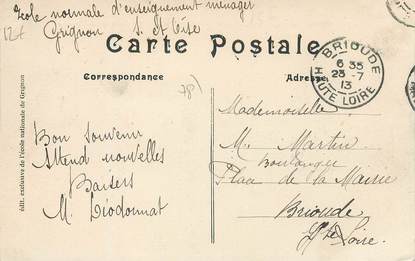 Ecole normale d'enseignement ménager
Grignon S. et Oise
Carte Postale
Correspondance
Adresse
BRIOUDE
6 35
23 -7
13
HAUTE LOIRE
Bon souvenir
Attend nouvelles
Baisers
M. Diodonnat
Mademoiselle
M. Martin
Boulanger
Place de la Mairie
Brioude
Hte Loire.
édit. exclusive de l'école nationale de Grignon